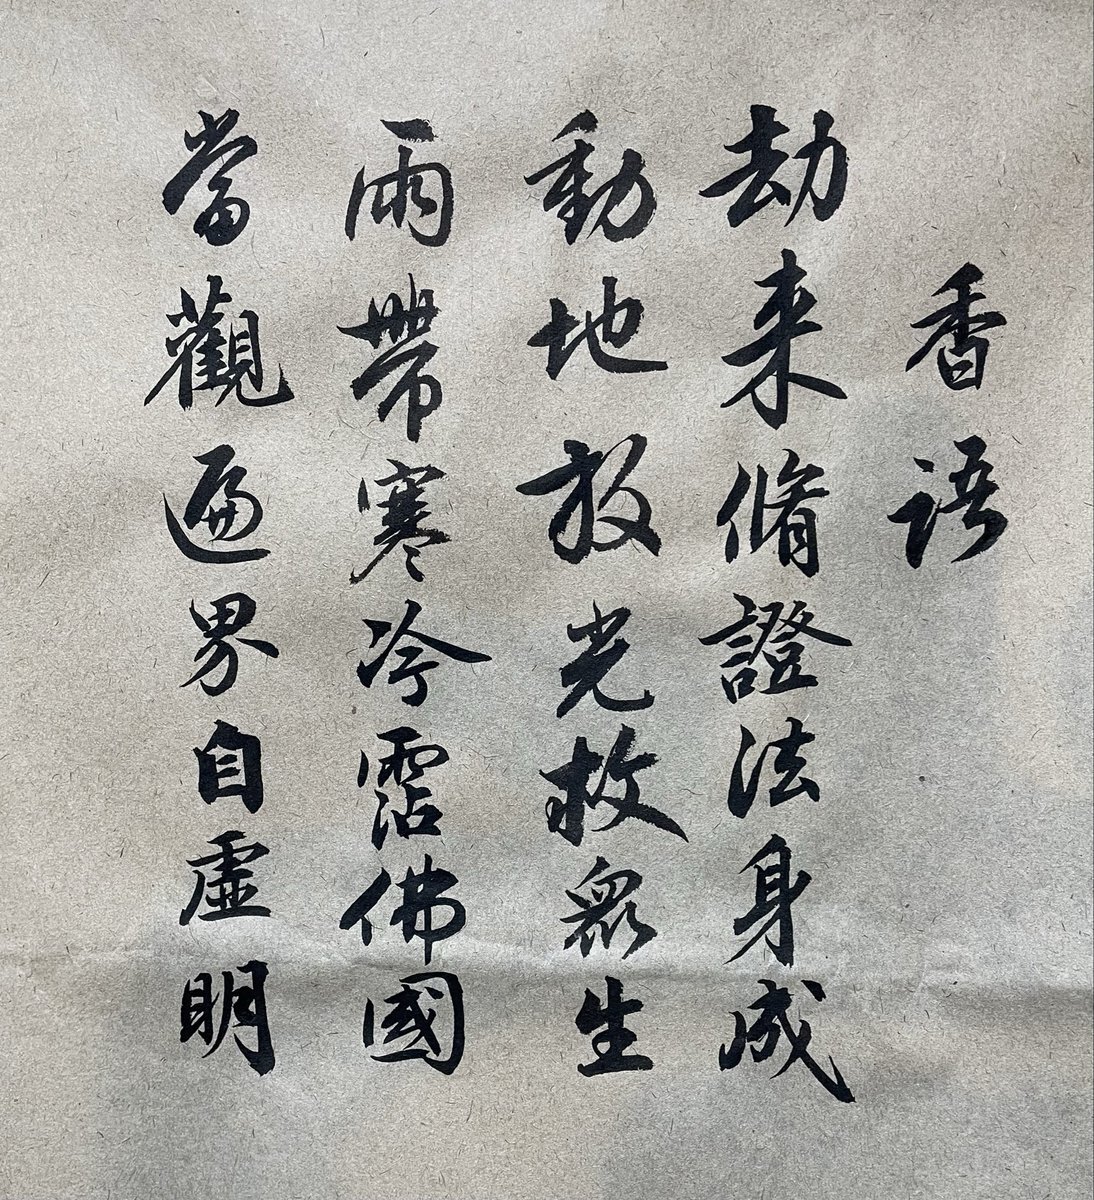 香語
劫来脩證法身成
動地放光救衆生
雨帶寒冷霑佛國
當觀遍界自虛明